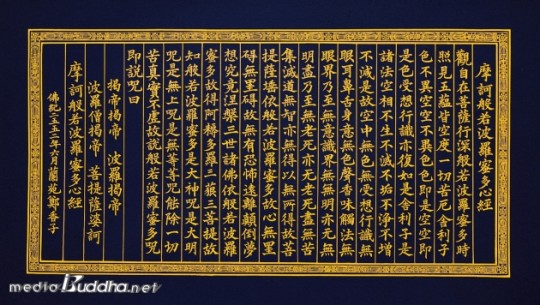 摩訶般若波羅蜜多心經
觀自在菩薩行深般若波羅蜜多時
照見五蘊皆空度一切苦厄舍利子
色不異空空不異色色即是空空即
是色受想行識亦復如是舍利子是
諸法空相不生不滅不垢不淨不增
不減是故空中無色無受想行識無
眼耳鼻舌身意無色聲香味觸法無
眼界乃至無意識界無無明亦无無
明盡乃至無老死亦无老死盡無苦
集滅道無智亦無得以無所得故菩
提薩埵依般若波羅蜜多故心無罣
碍無罣碍故無有恐怖遠離顛倒夢
想究竟涅槃三世諸佛依般若波羅
蜜多故得阿耨多羅三藐三菩提故
知般若波羅蜜多是大神咒是大明
咒是無上咒是無等等咒能除一切
苦真實不虛故說般若波羅蜜多咒
即說咒曰
揭帝揭帝 波羅揭帝
波羅僧揭帝 菩提薩婆訶
摩訶般若波羅蜜多心經
佛紀二五五二年六月蘭苑鄭香子
mediaBuddha.net